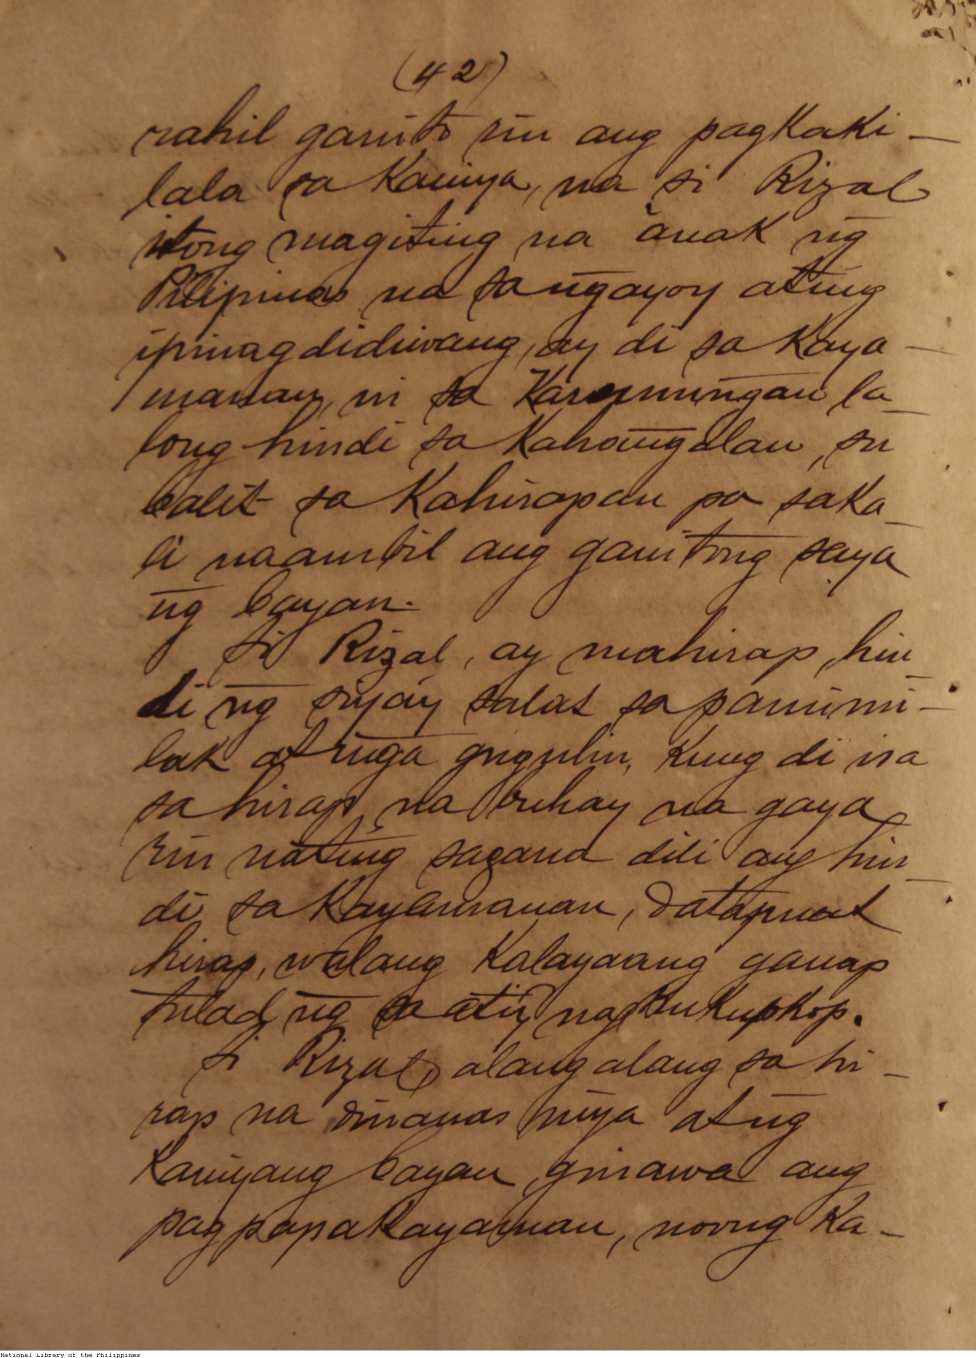 (42)
rahil ganito rin ang pagKaKi-
lala sa Kaniya, na si Rizal
itong magiting na ànaK ng̃
Pilipinas na sa ng̃ayoy ating
ipinagdidiwang, ay di sa Kaya-
manan, ni sa Karunung̃an la-
long hindi sa Kahang̃alan, su
balit sa Kahirapan pa saKa-
li naambil ang ganitong saya
ng̃ bayan.
Si Rizal, ay mahirap, hin
di ng̃ siyáy salat sa panini-
laK at mg̃a gugulin, Kung di isa
sa hirap, na buhay na gaya
rin nating sagana dili ang hin-
di sa Kayamanan, datapuat
hirap, walang Kalayaang ganap
tulad ng̃ sa atiy nagKuKupKop.
Si Rizal, alang alang sa hi-
rap na dinanas niya at ng̃
Kaniyang bayan, ginawa ang
pagpapaKayaman, noong Ka-
National Library of the Philippines